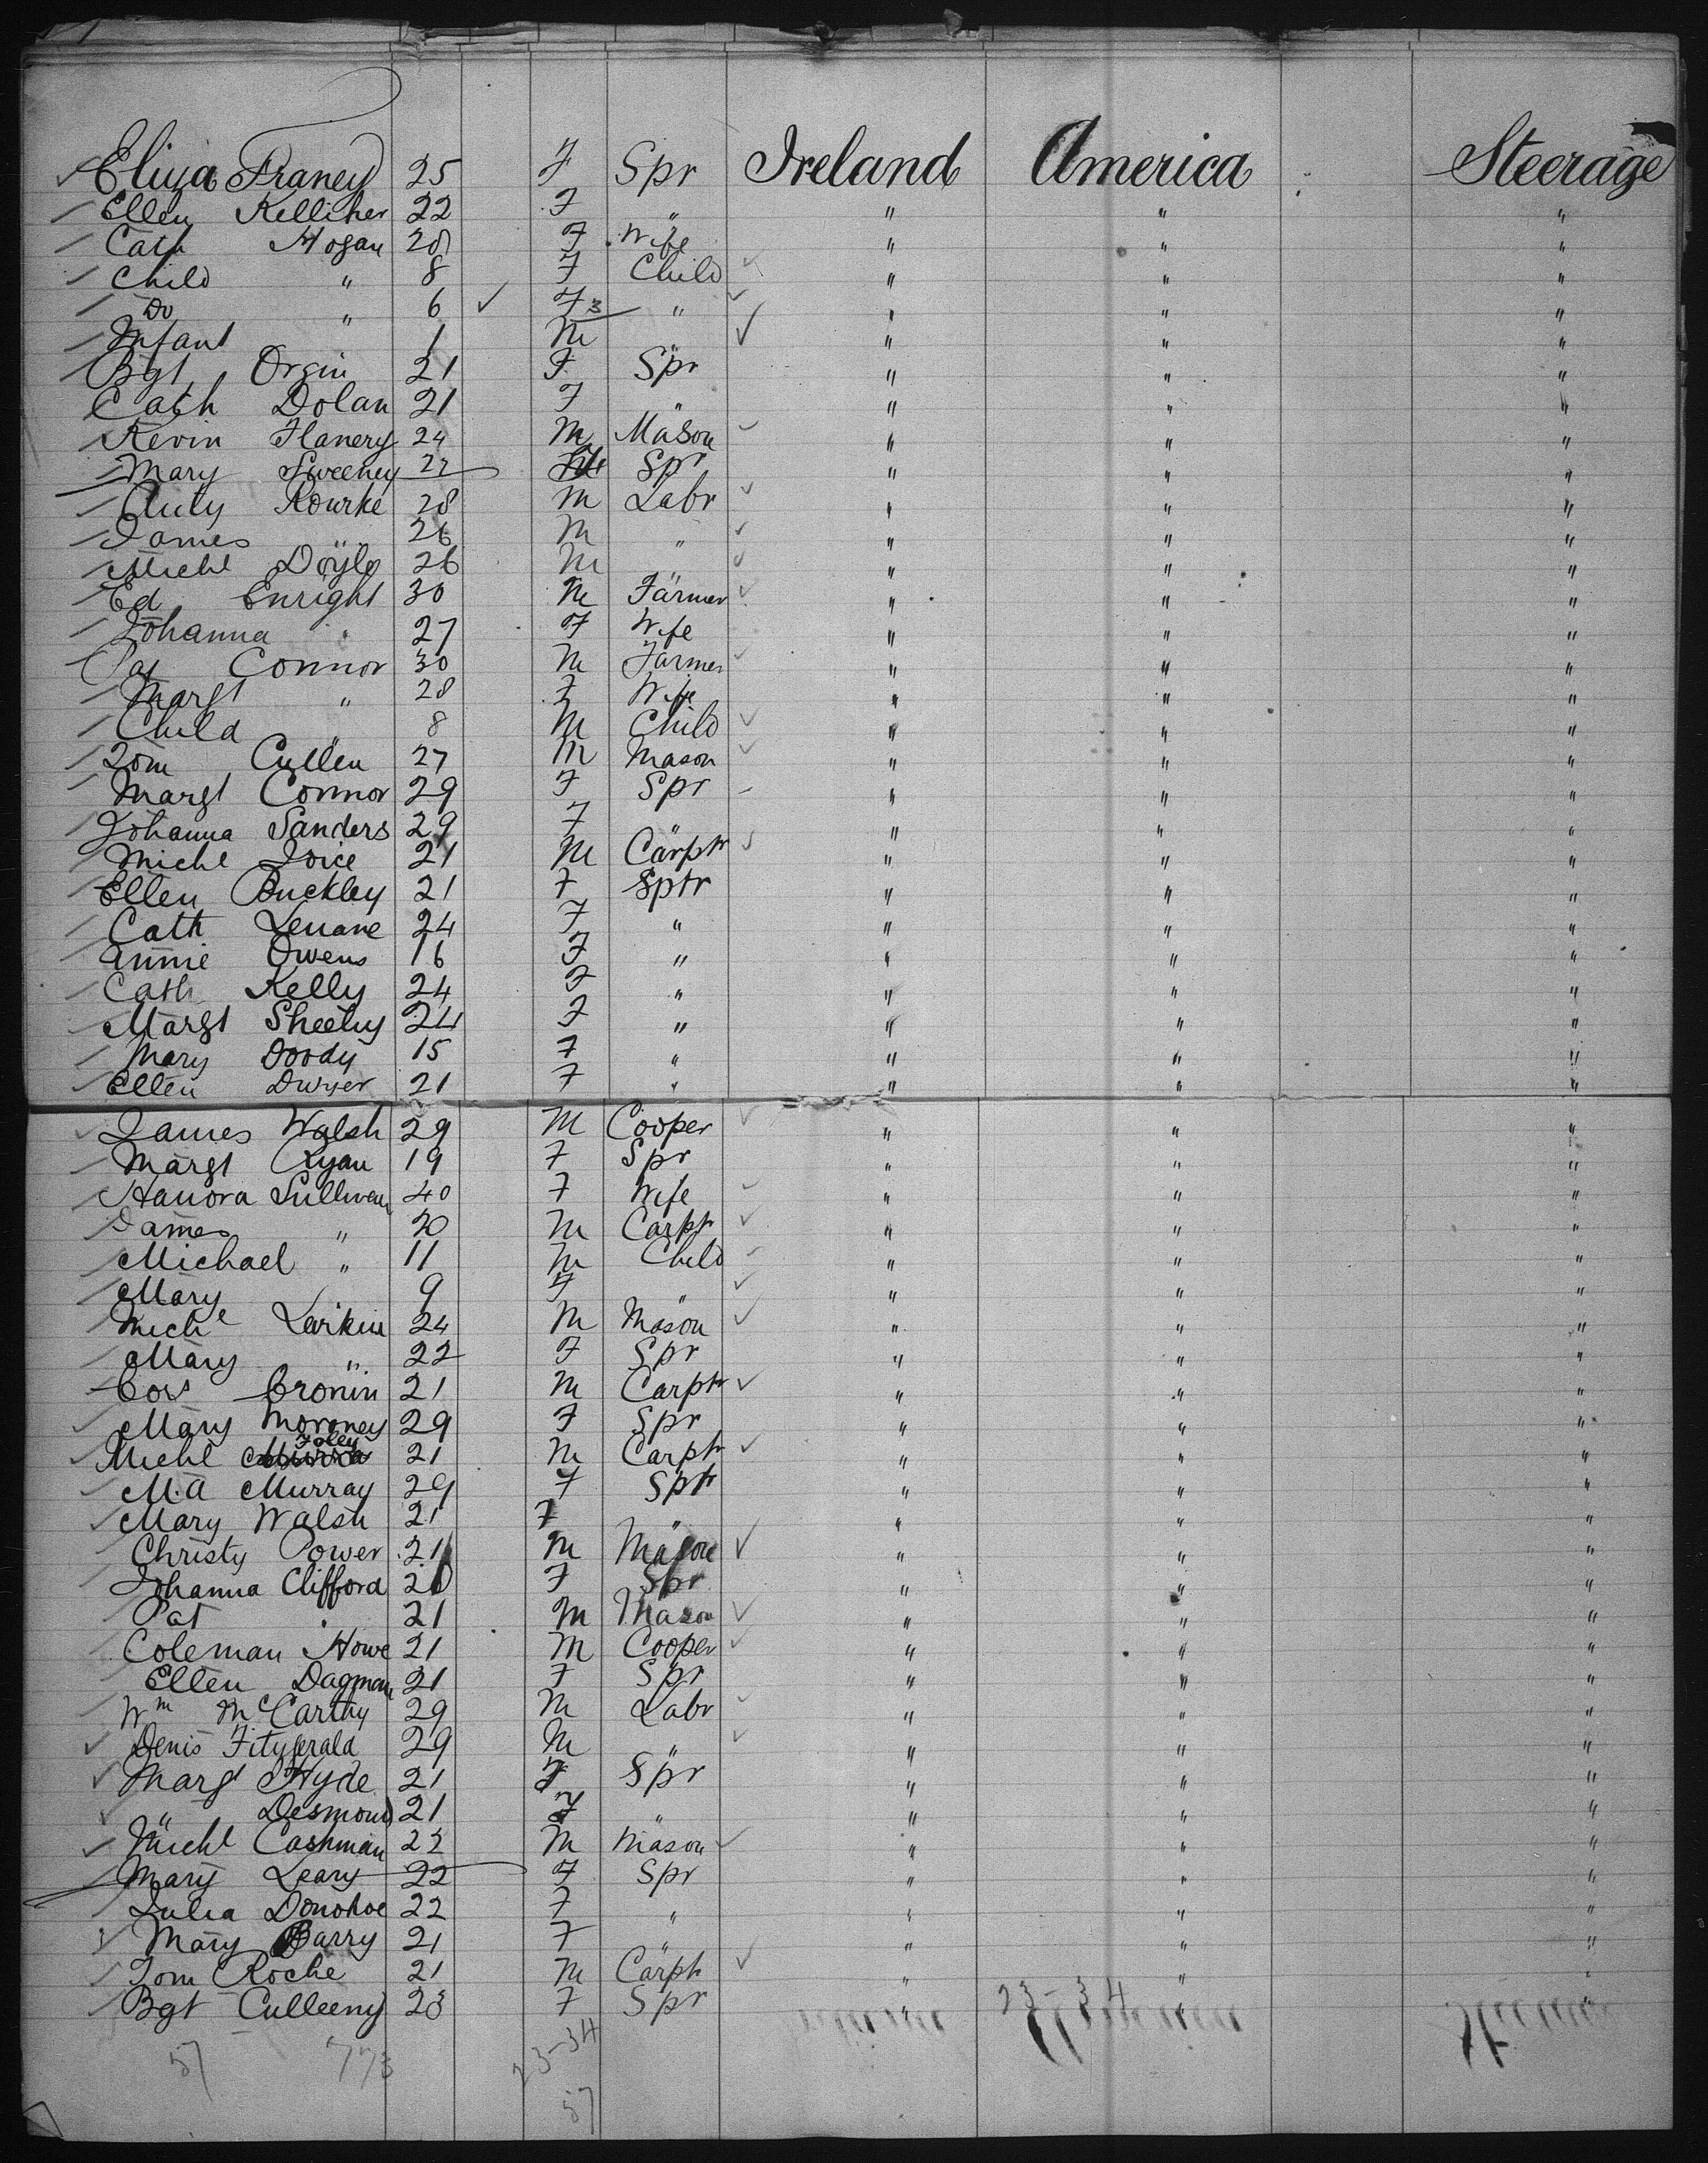 Eliza Franey 25 F Spr Ireland America Steerage
Ellen Kelliher 22 F " " " "
Cath Hogan 28 F Wife " " "
Child " 8 F Child " " "
Do " 6 F 3 " " " "
Infant 1 M " " " "
Bgt 21 F Spr " " "
Cath Dolan 21 F " " " "
Kevin Flanery 24 M Mason " " "
Mary Sweeney 22 F Spr " " "
Rourke 28 M Labr " " "
James " 26 M " " " "
Michl Doyle 26 M " " " "
Ed Enright 30 M Farmer " " "
Johanna " 27 F Wife " " "
Pat Connor 30 M Farmer " " "
Margt " 28 F Wife " " "
Child " 8 M Child " " "
Tom Cullen 27 M Mason " " "
Margt Connor 29 F Spr " " "
Johanna Sanders 29 F " " " "
Michl Joice 21 M Carptr " " "
Ellen Buckley 21 F Sptr " " "
Cath Lenane 24 F " " " "
Annie Owens 16 F " " " "
Cath Kelly 24 F " " " "
Margt Sheehy 24 F " " " "
Mary Doody 15 F " " " "
Ellen Dwyer 21 F " " " "
James Walsh 29 M Cooper " " "
Margt Ryan 19 F Spr " " "
Hanora Sullivan 40 F Wife " " "
James " 20 M Carptr " " "
Michael " 11 M Child " " "
Mary " 9 F " " " "
Michl Larkin 24 M Mason " " "
Mary " 22 F Spr " " "
Cors Cronin 21 M Carptr " " "
Mary Moroney 29 F Spr " " "
Michl Foley 21 M Carptr " " "
M.A Murray 29 F Sptr " " "
Mary Walsh 21 F " " " "
Christy Power 21 M Mason " " "
Johanna Clifford 20 F Spr " " "
Pat " 21 M Mason " " "
Coleman Howe 21 M Cooper " " "
Ellen Dagman 21 F Spr " " "
Wm McCarthy 29 M Labr " " "
Denis Fitzgerald 29 M " " " "
Margt Hyde 21 F Spr " " "
" Desmond 21 F " " " "
Michl Cashman 22 M Mason " " "
Mary Leary 22 F Spr " " "
Julia Donohoe 22 F " " " "
Mary Barry 21 F " " " "
Tom Roche 21 M Carptr " " "
Bgt Culleeny 23 F Spr " " "
23-34
57 773 23-34
57